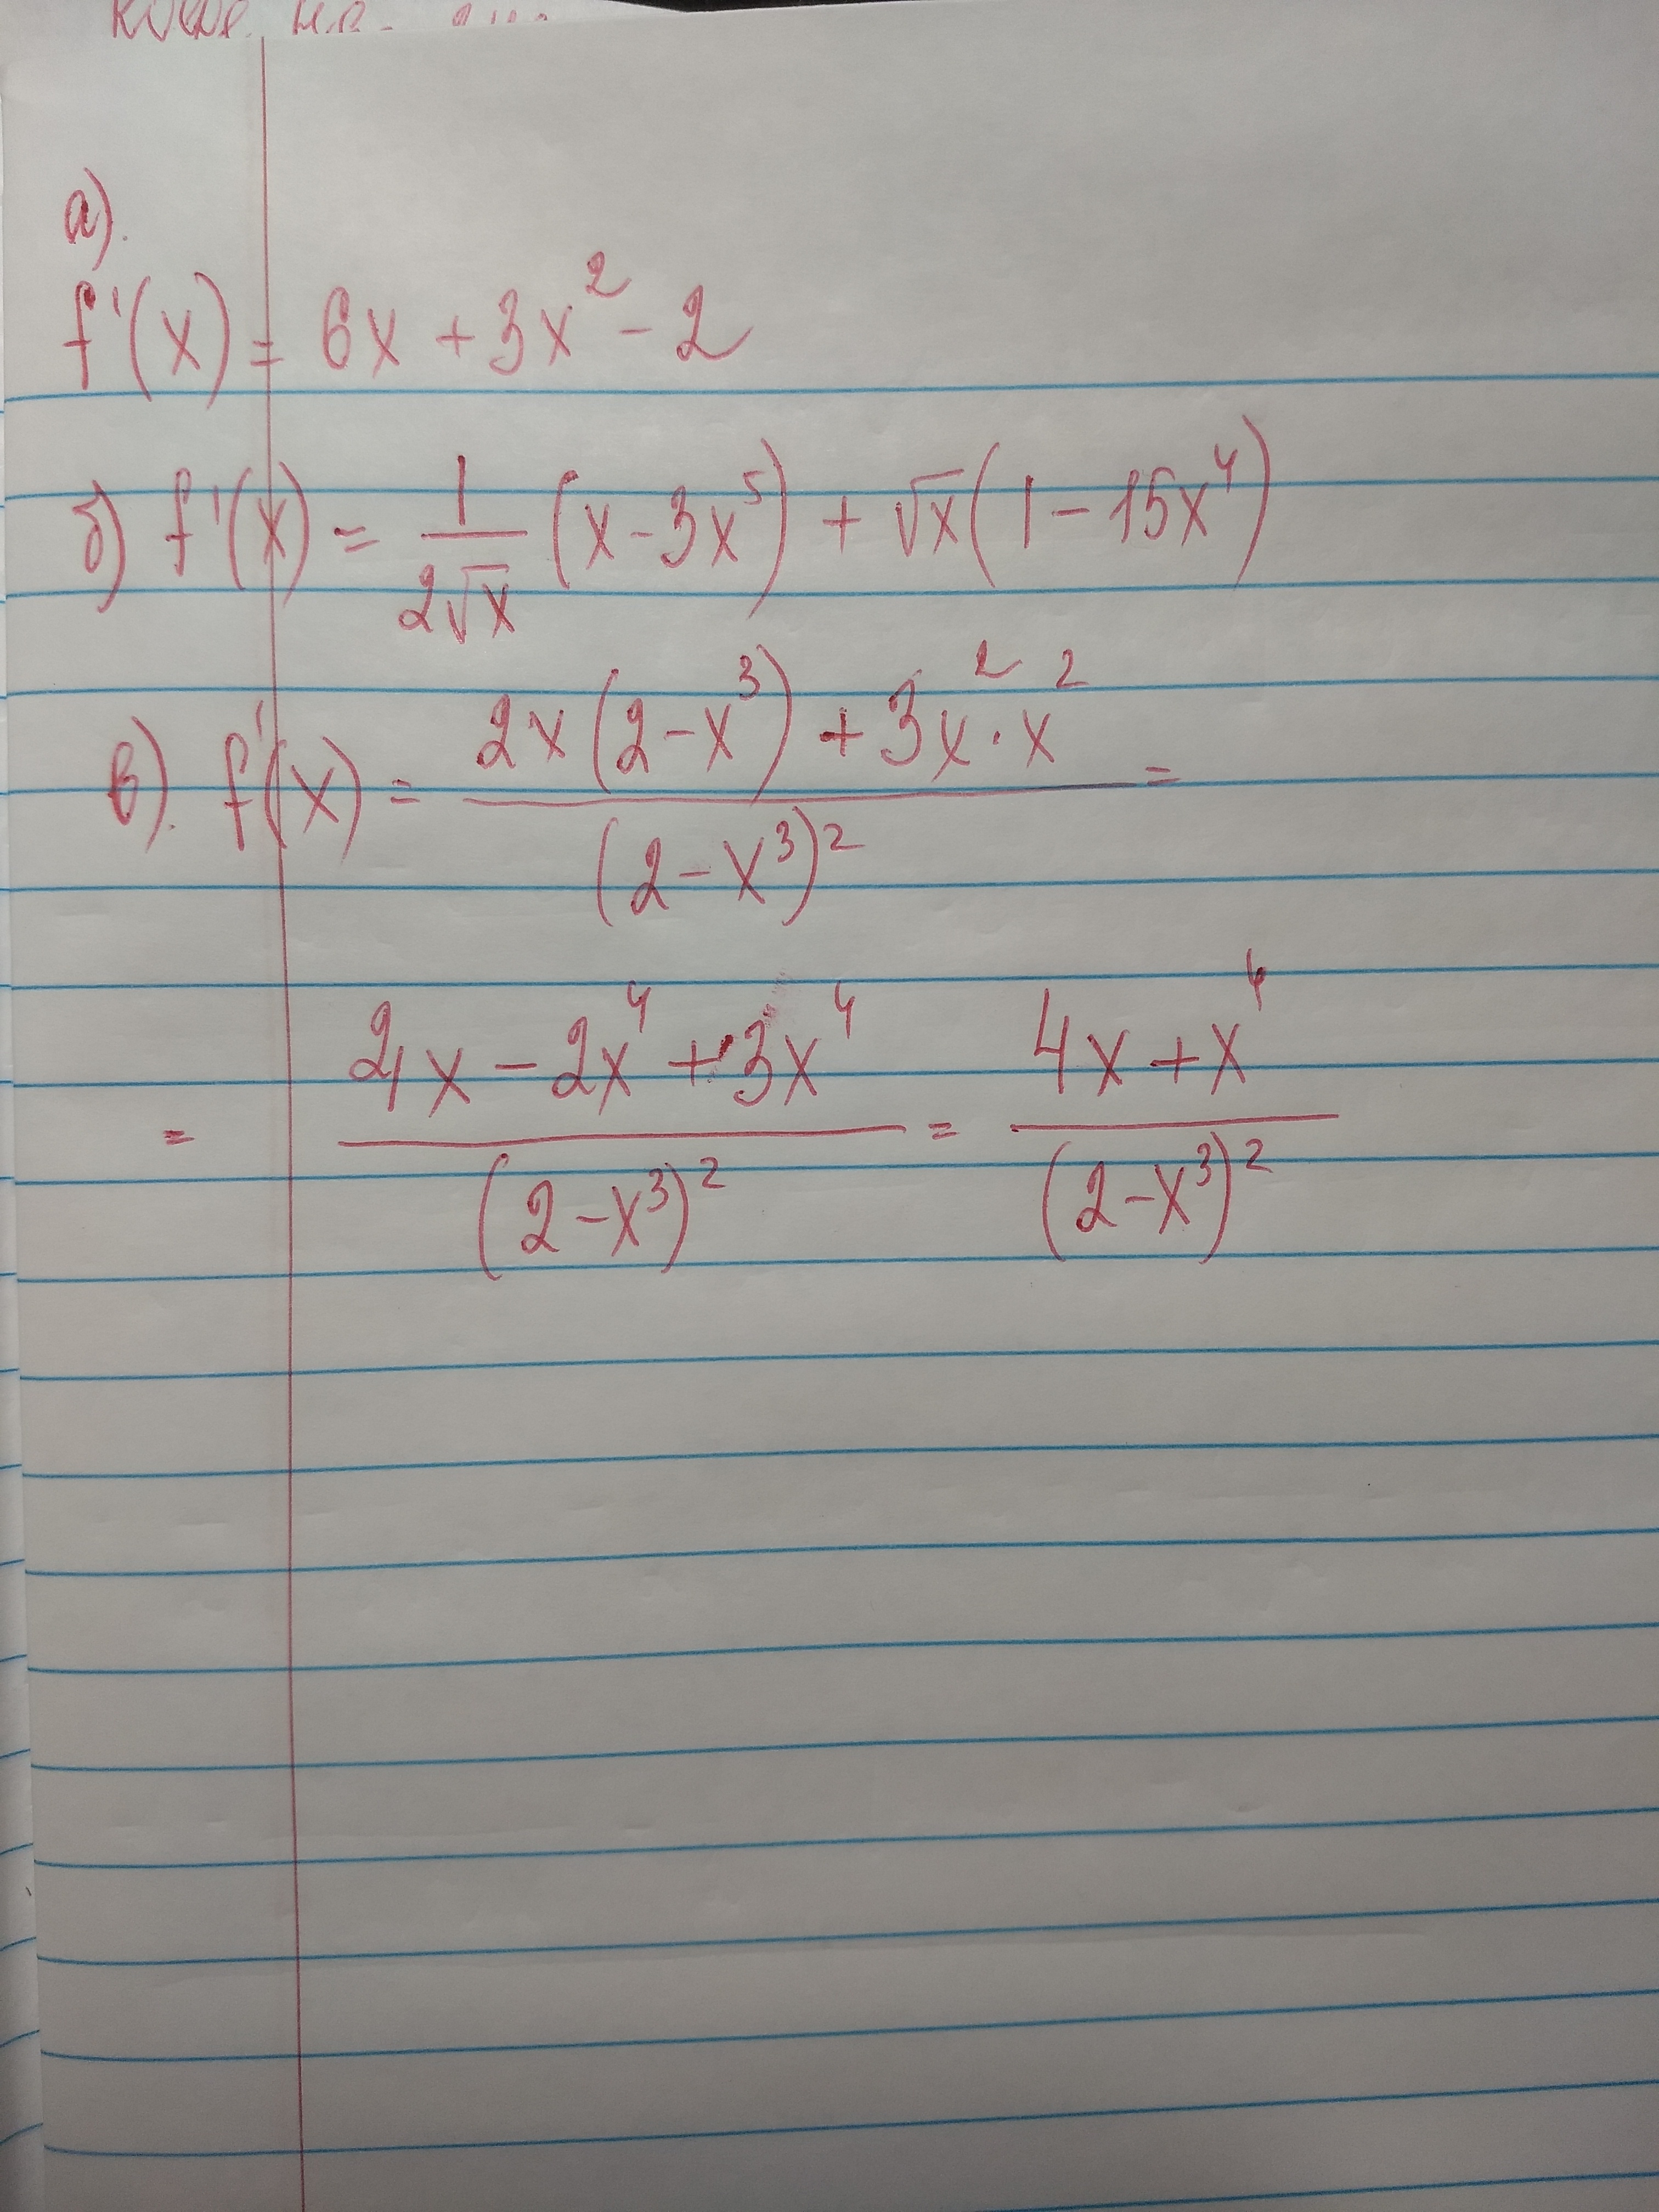 а).
f'(x) = 6x + 3x² - 2
б) f'(x) = 1/(2√x) (x - 3x⁵) + √x(1 - 15x⁴)
в). f'(x) = (2x(2 - x³) + 3x² · x²)/(2 - x³)² =
= (4x - 2x⁴ + 3x⁴)/(2 - x³)² = (4x + x⁴)/(2 - x³)²